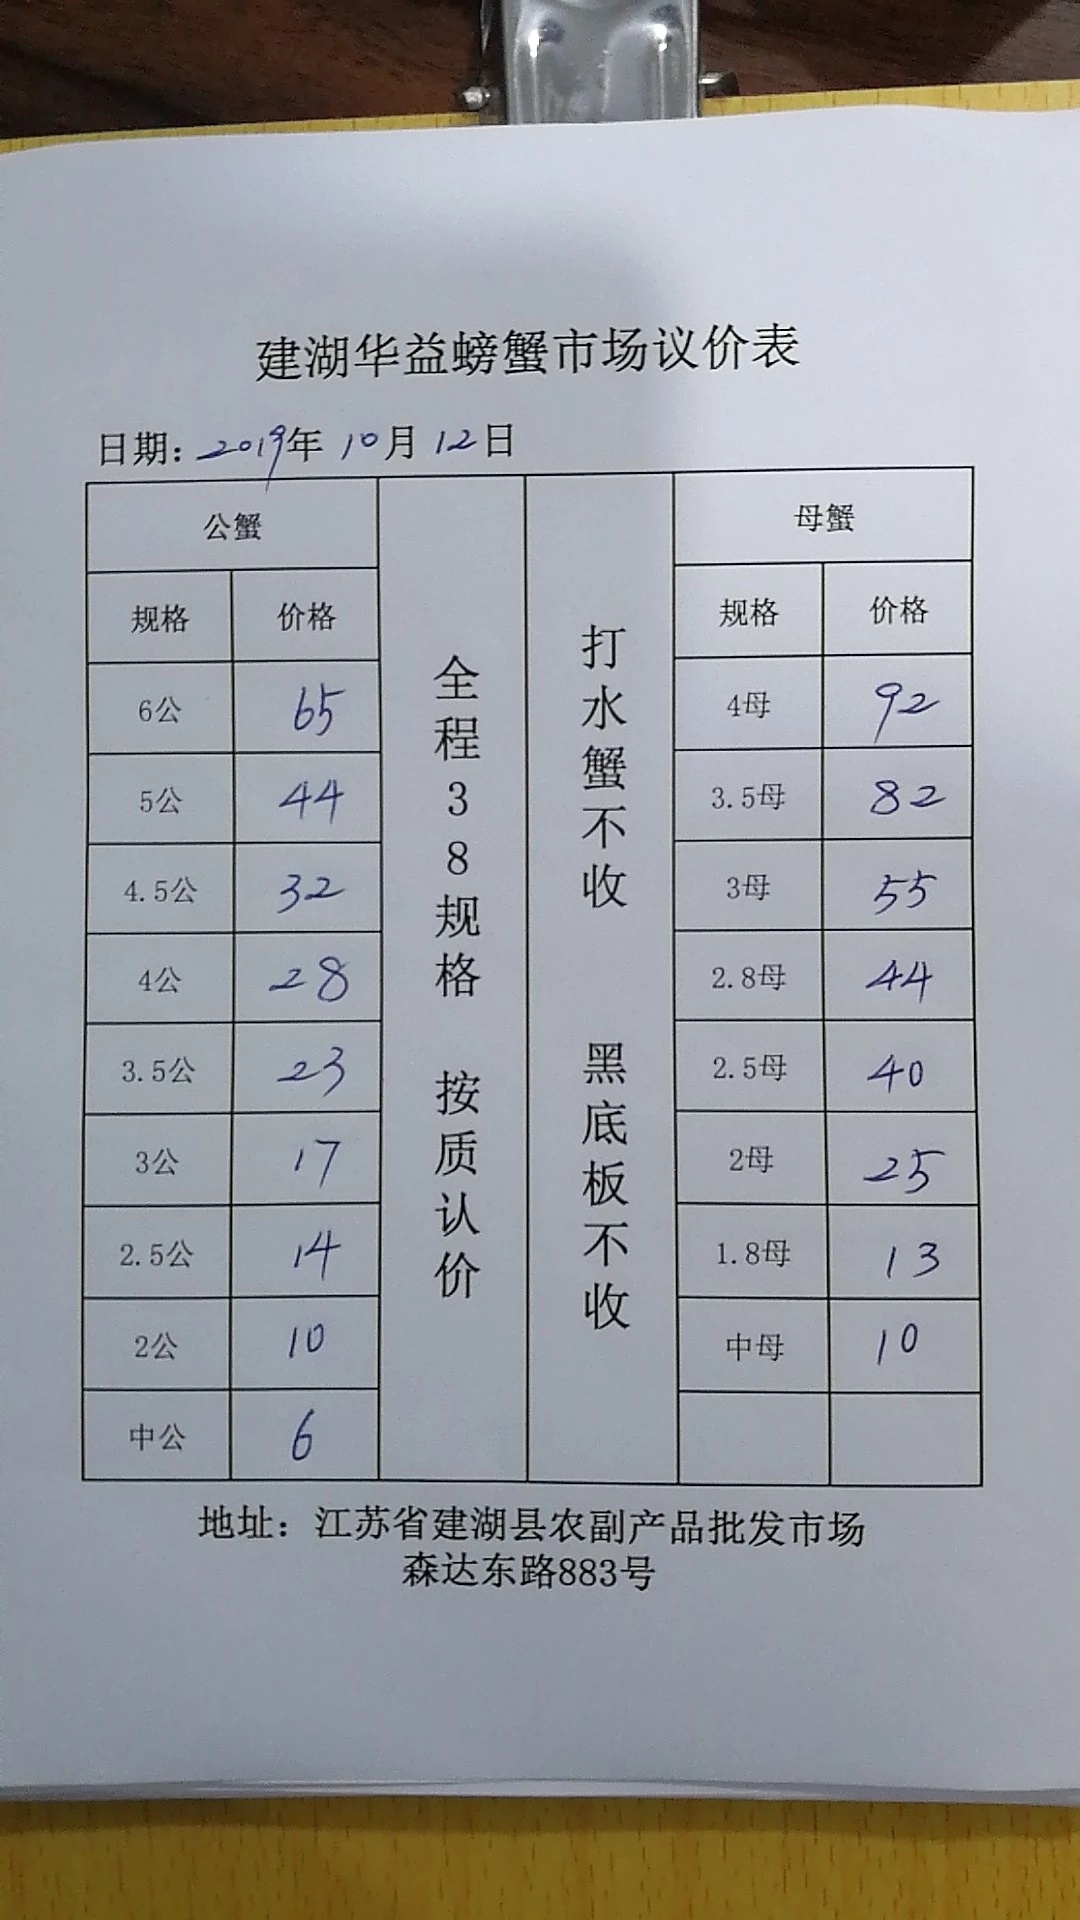 建湖华益螃蟹市场议价表
日期: 2019年 10月 12日
公蟹
规格 价格
6公 65
5公 44
4.5公 32
4公 28
3.5公 23
3公 17
2.5公 14
2公 10
中公 6
全程38规格 按质认价
打水蟹不收 黑底板不收
母蟹
规格 价格
4母 92
3.5母 82
3母 55
2.8母 44
2.5母 40
2母 25
1.8母 13
中母 10
地址：江苏省建湖县农副产品批发市场
森达东路883号